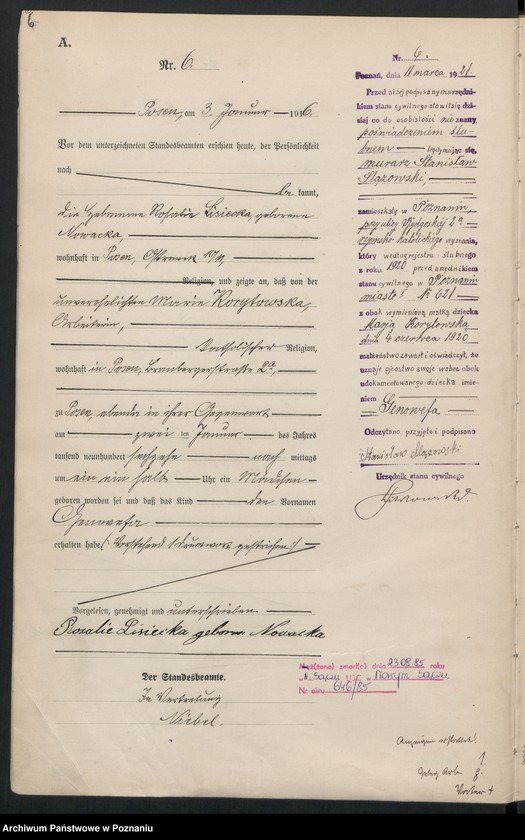 6
A.
Nr. 6
Posen, am 3. Januar 1916.
Vor dem unterzeichneten Standesbeamten erschien heute, der Persönlichkeit
nach
be kannt,
die Hebamme Rosalie Lisiecka, geborene
Nowacka,
wohnhaft in Posen, Ostrowek 10/11,
Religion, und zeigte an, daß von der
unverehelichten Marie Korytowska,
Arbeiterin,
katholischer Religion,
wohnhaft in Posen, Brombergerstraße 2a,
zu Posen, ebenda in ihrer Gegenwart
am zwei ten Januar des Jahres
tausend neunhundert sechzehn nach mittags
um ein ein halb Uhr ein Mädchen
geboren worden sei und daß das Kind den Vornamen
Genovefa
erhalten habe (: Vorstehend 1 Druckwort gestrichen :)
Vorgelesen, genehmigt und unterschrieben
Rosalie Lisiecka geborne Nowacka
Der Standesbeamte.
In Vertretung
Niebel.
Nr. 6.
Poznań, dnia 11 marca 1921
Przed niżej podpisanym urzędni-
kiem stanu cywilnego stawił się dzi-
siaj co do osobistości nie znany,
poświadczeniem ślu-
bnem legitymując się,
murarz Stanisław
zamieszkały w Poznaniu,
przy ulicy Bydgoskiej 2a
rzymsko katolickiego wyznania,
który według rejestru ślubnego
z roku 1920 przed urzędnikiem
stanu cywilnego w Poznaniu
miasto I № 621
z obok wymienioną matką dziecka
Marją Korytowską
dnia 4 czerwca 1920
małżeństwo zawarł i oświadczył, że
uznaje ojcostwo swoje wobec obok
udokumentowanego dziecka imie-
niem
Genowefa.
Odczytano, przyjęto i podpisano
Stanisław
Urzędnik stanu cywilnego
zmarł(a) dnia 23.08.85 roku
N. Sączu USC Nowym Sączu
Nr aktu 646/85